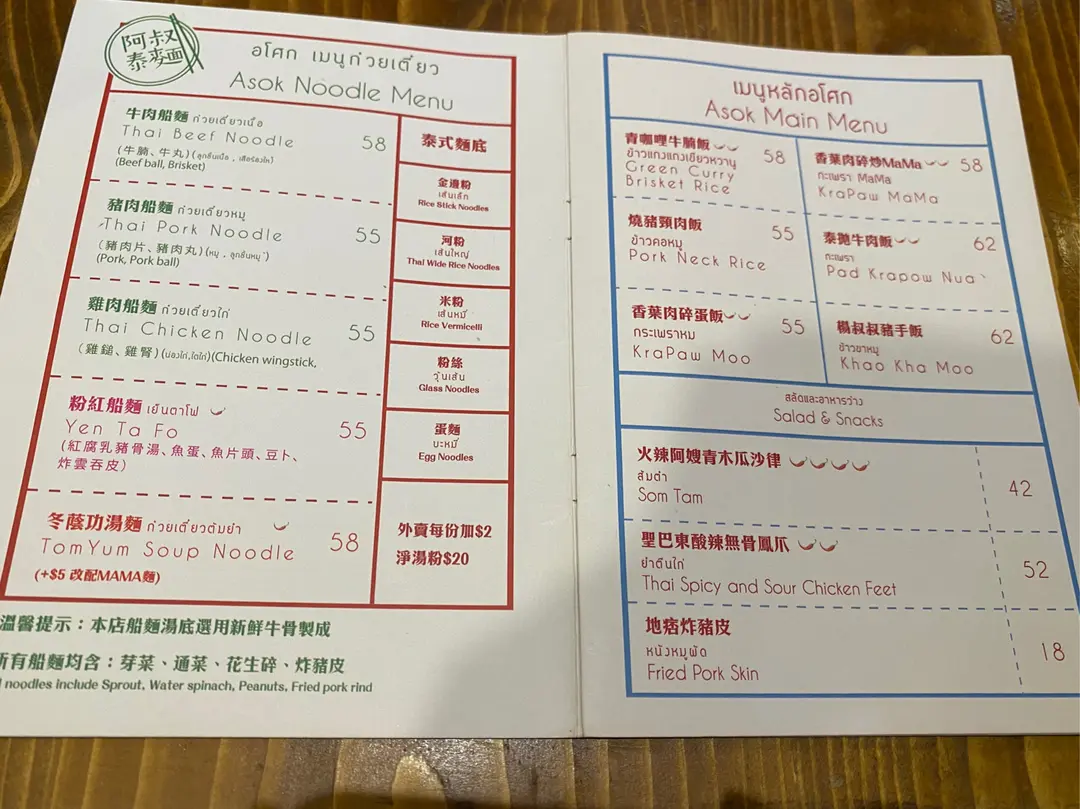 阿叔
泰麵
อโศก เมนูก๋วยเตี๋ยว
Asok Noodle Menu
牛肉船麵 ก๋วยเตี๋ยวเนื้อ
Thai Beef Noodle 58
(牛腩、牛丸) (ลูกชิ้นเนื้อ , เสือร้องไห้)
(Beef ball, Brisket)
豬肉船麵 ก๋วยเตี๋ยวหมู
Thai Pork Noodle 55
(豬肉片、豬肉丸) (หมู , ลูกชิ้นหมู)
(Pork, Pork ball)
雞肉船麵 ก๋วยเตี๋ยวไก่
Thai Chicken Noodle 55
(雞鎚、雞腎) (น่องไก่,ไตไก่) (Chicken wingstick,
粉紅船麵 เย็นตาโฟ
Yen Ta Fo 55
(紅腐乳豬骨湯、魚蛋、魚片頭、豆卜、
炸雲吞皮)
冬蔭功湯麵 ก๋วยเตี๋ยวต้มยำ
TomYum Soup Noodle 58
(+$5 改配MAMA麵)
泰式麵底
金邊粉
เส้นเล็ก
Rice Stick Noodles
河粉
เส้นใหญ่
Thai Wide Rice Noodles
米粉
เส้นหมี่
Rice Vermicelli
粉絲
วุ้นเส้น
Glass Noodles
蛋麵
บะหมี่
Egg Noodles
外賣每份加$2
淨湯粉$20
溫馨提示：本店船麵湯底選用新鮮牛骨製成
所有船麵均含：芽菜、通菜、花生碎、炸豬皮
l noodles include Sprout, Water spinach, Peanuts, Fried pork rind
เมนูหลักอโศก
Asok Main Menu
青咖喱牛腩飯 58
ข้าวแกงแกงเขียวหวานู
Green Curry
Brisket Rice
燒豬頸肉飯 55
ข้าวคอหมู
Pork Neck Rice
香葉肉碎蛋飯 55
กระเพราหม
KraPaw Moo
香葉肉碎炒MaMa 58
กะเพรา MaMa
KraPaw MaMa
泰拋牛肉飯 62
กะเพรา
Pad Krapow Nua
楊叔叔豬手飯 62
ข้าวขาหมู
Khao Kha Moo
สลัดและอาหารว่าง
Salad & Snacks
火辣阿嫂青木瓜沙律
ส้มตำ 42
Som Tam
聖巴東酸辣無骨鳳爪
ยำตีนไก่ 52
Thai Spicy and Sour Chicken Feet
地痞炸豬皮
หนังหมูผัด 18
Fried Pork Skin